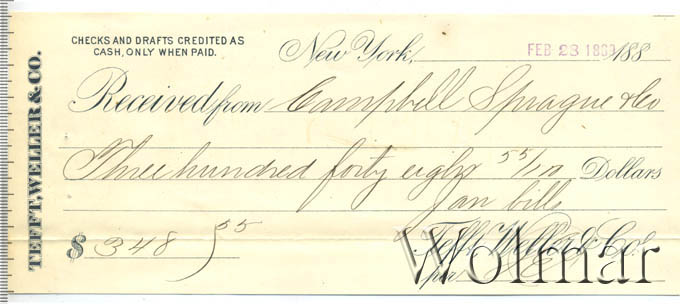 TEFFT, WELLER & CO.
CHECKS AND DRAFTS CREDITED AS
CASH, ONLY WHEN PAID.
New York, FEB 23 188
Received from Campbell Sprague & Co
Three hundred forty eight 55/100 Dollars
Jan bills
$ 348 55
Tefft Weller & Co.
per
Wolmar